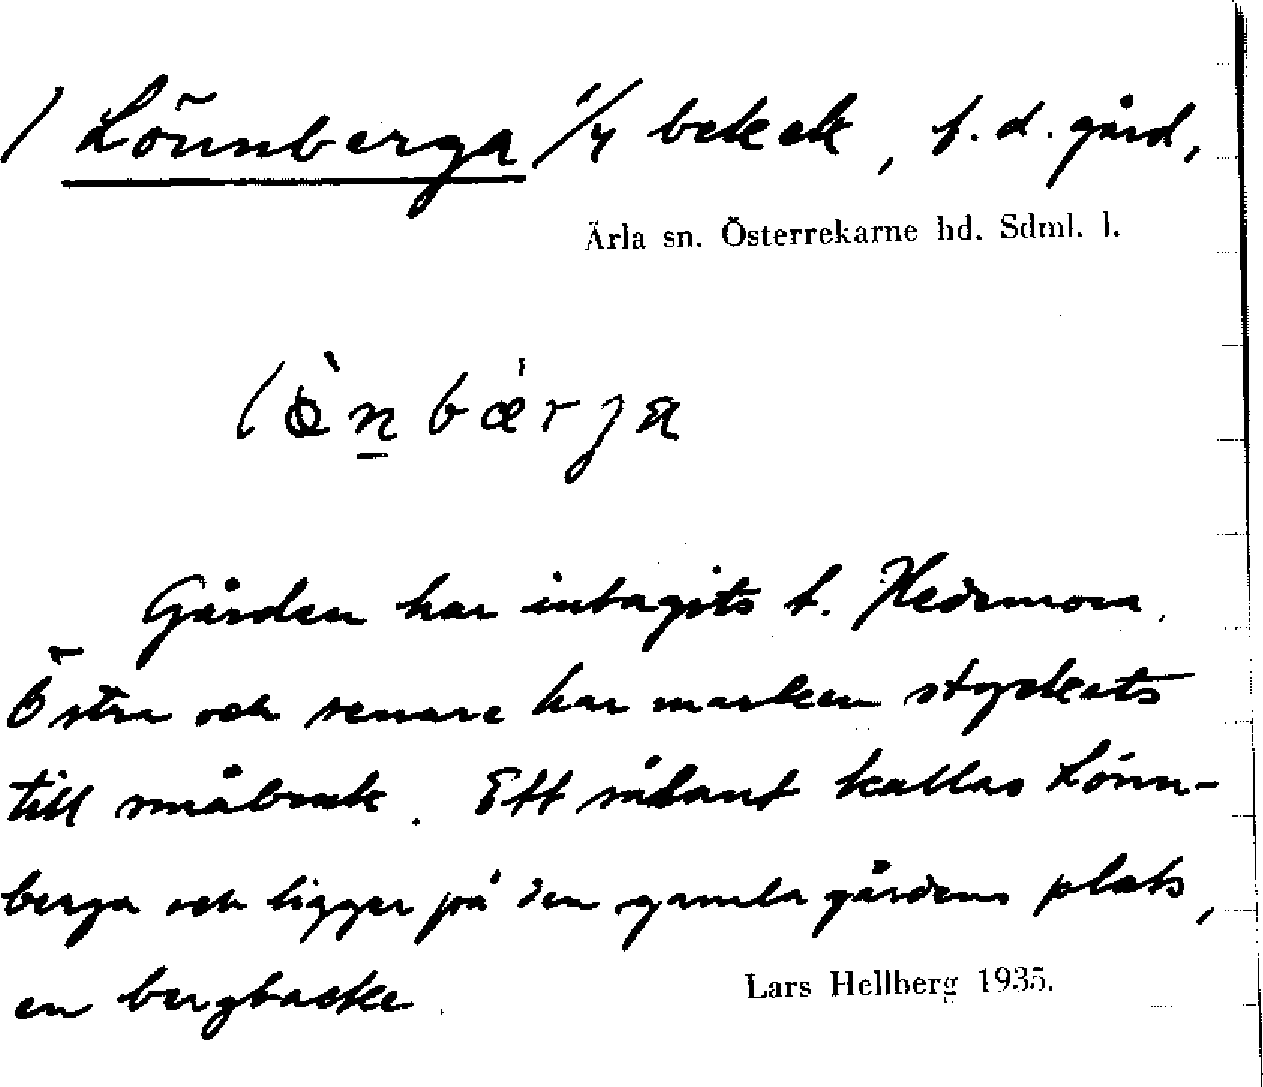 / Lönnberga 1/4 bebck, f. d. gård,
Ärla sn. Österrekarne hd. Sdml. l.
lö̀nbǽrja
Gården har intagits t. Hedemora
Östra och senare har marken styckats
till småbruk. Ett sådant kallas Lönn-
berga och ligger på den gamla gårdens plats,
en bergbacke.
Lars Hellberg 1935.